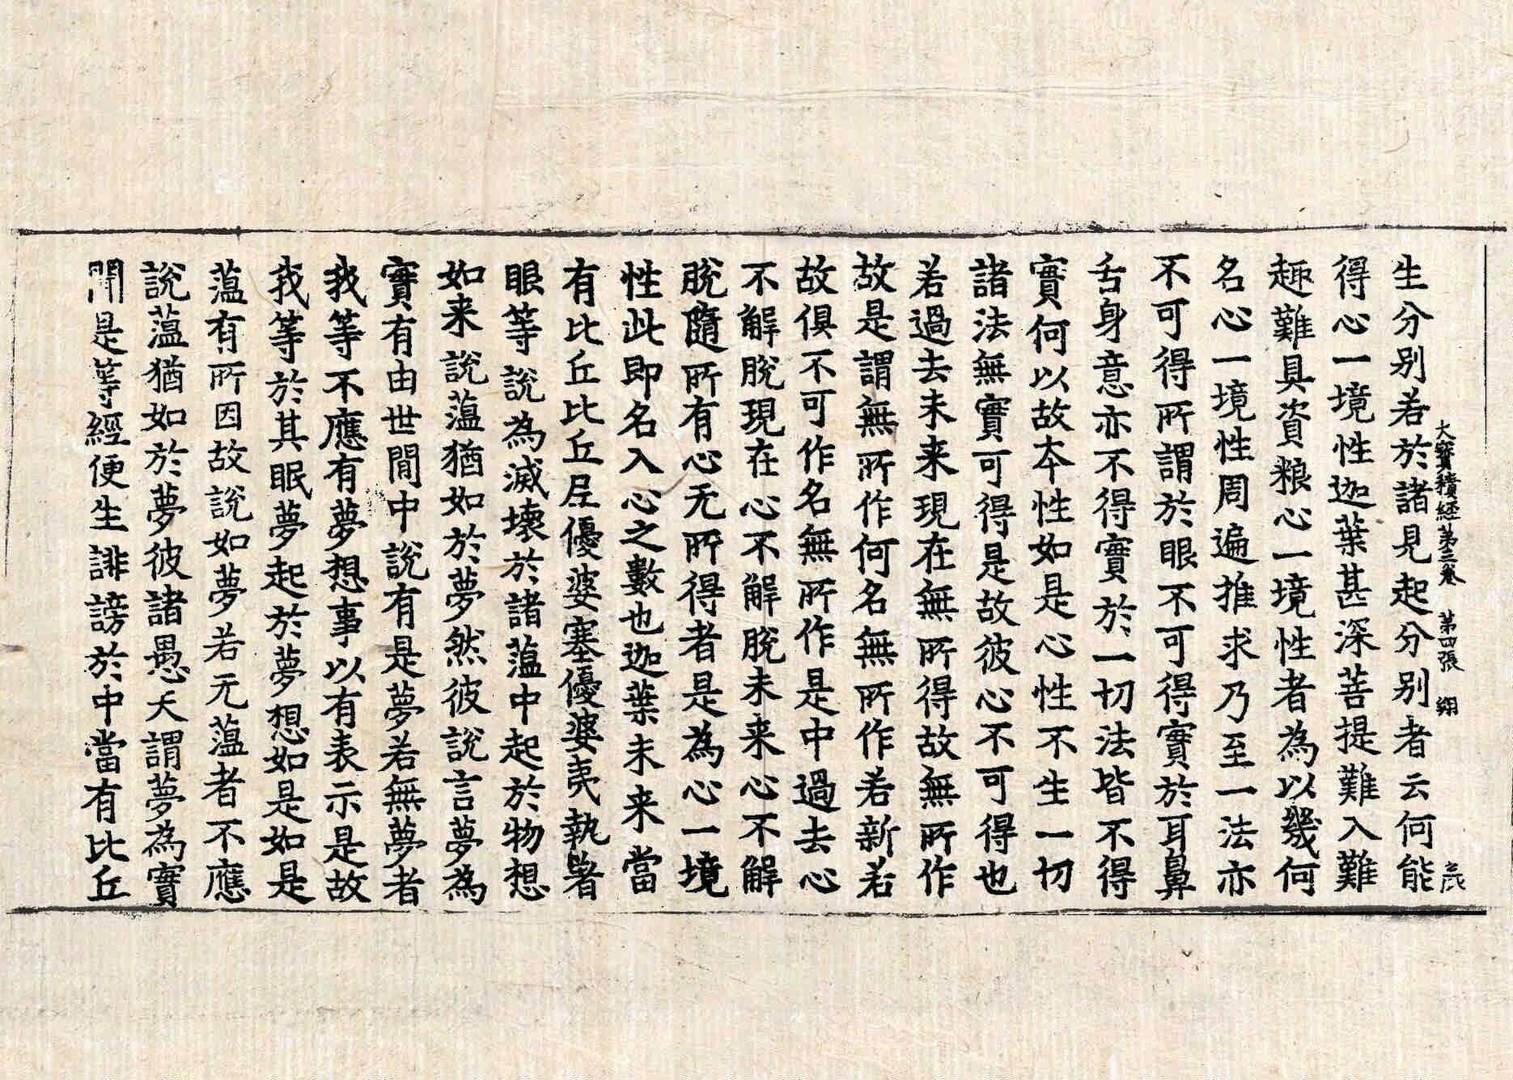 大寳積経苐三巻 苐四張 翔
生分別若於諸見起分別者云何能
得心一境性迦葉甚深菩提難入難
趣難具資粮心一境性者為以幾何
名心一境性周遍推求乃至一法亦
不可得所謂於眼不可得實於耳鼻
舌身意亦不得實於一切法皆不得
實何以故夲性如是心性不生一切
諸法無實可得是故彼心不可得也
若過去未来現在無所得故無所作
故是謂無所作何名無所作若新若
故俱不可作名無所作是中過去心
不解脫現在心不解脫未来心不解
脫隨所有心无所得者是為心一境
性此即名入心之數也迦葉未来當
有比丘比丘尼優婆塞優婆夷執著
眼等說為滅壞於諸薀中起於物想
如来說薀猶如於夢然彼說言夢為
實有由世閒中說有是夢若無夢者
我等不應有夢想事以有表示是故
我等於其眠夢起於夢想如是如是
薀有所因故說如夢若无薀者不應
說薀猶如於夢彼諸愚夫謂夢為實
聞是等經便生誹謗於中當有比丘